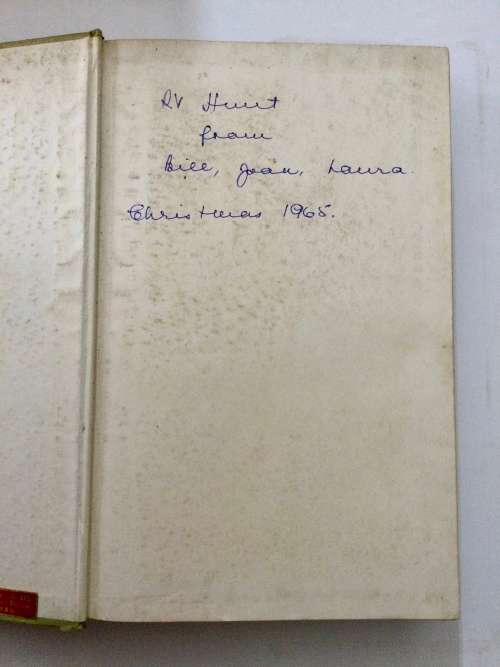 RV Hunt
from
Bill, Joan, Laura.
Christmas 1965.